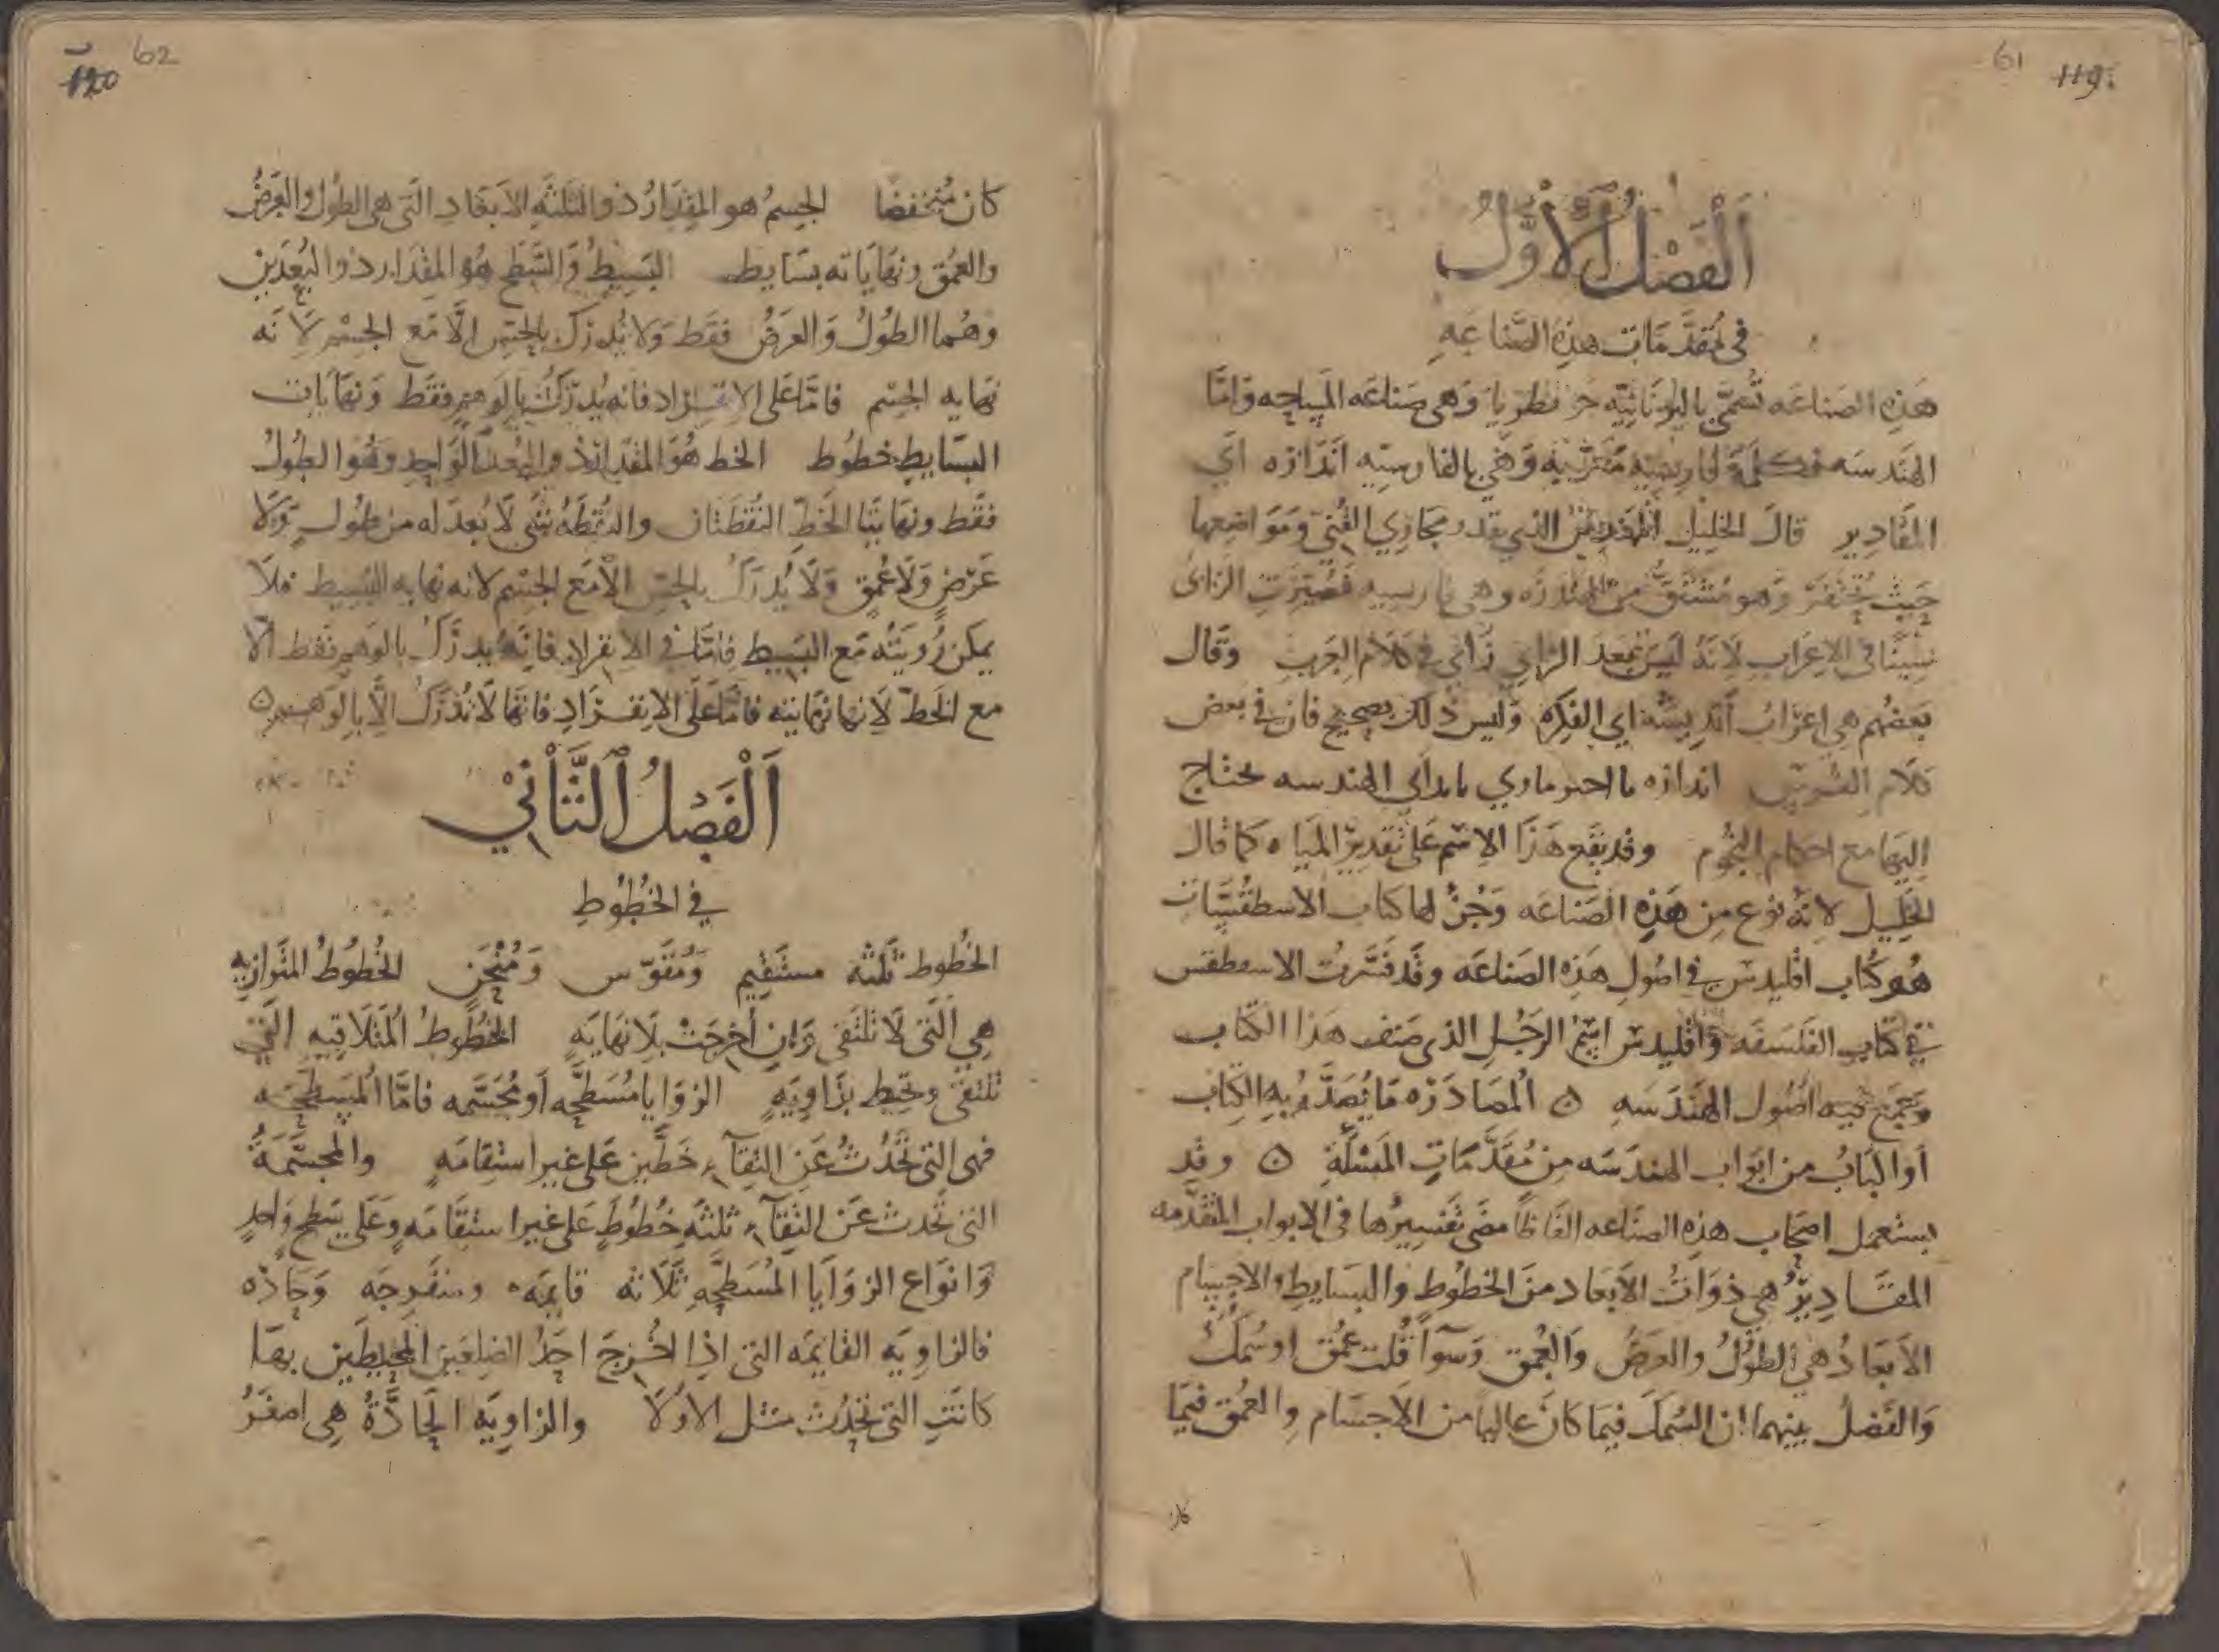 61 119
اَلْفَصْلُ اْلأَوَّلُ
في مُقدَّمَات هَذِه الصَّناعَهِ
هَذِه الصناعَه تُسَمَّى باليُونَانِيَّه جَومَطريا وَهي صَناعَه المسِاحِه وَامَّا
الهَندسَه فكلمَة فارسِيّه مُعَرَّبَه وَهي بالفارسِيّه اَندَازه اَي
المقَادِير قالَ الخلِيْل المُهَندِسُ الذي يقدر مجَارِي القُنيّ وَمَوَاضِعها
حَيثُ تُحتفَر وَهو مُشتَقّ من الهندزَه وهي فارسيه فصُيّرَتِ الزايُ
سِينًا في الاعِرَاب لاَنهُ ليَسَ بَعدَ الدال زاي في كلام العَربِ وَقالَ
بَعضُهم هي اعرَابُ اَندِيشه اي الفكره وَليس ذلك بصَحيحٍ فان في بعض
كلام الفُرسِ اندازه با احتر ماري بايد اي الهندسه يحتاج
اليها مع احكام النجُوم وقد يقَع هَذَا الاسْم عَلى تقدِير المياه كمَا قال
الخَليل لانَّه نوع مِن هَذِه الصنَاعَه وَجُزْ لها كتاب الاسطقُسَّات
هُو كتاب اقليدس في اصُولِ هَذِه الصنَاعَه وقَد فَسَّرتُ الاسطقس
في كتَابِ الفَلسَفَه وَاقليدس اسْمُ الرَجُلِ الذى صَنف هَذا الكتَاب
وَجَمَعَ فيه اصُول الهَندَسَهِ ٥ اَلمصَادَرَه مَا يُصَدَّر بِه الكِتابُ
اَو البَابُ من ابَواب الهندَسَه مِن مُقدَّمَاتِ المَسْلَةِ ٥ وقد
يستعمل اصحَاب هذِه الصنَاعه الفَاظًا مضَى تفسِيرُها في الابواب المتقَدِّمه
المقَادِيرُ هي ذوَاتُ الاَبعاد منَ الخطُوط والبسَايط والاجسَام
الاَبعَادُ هي الطُولُ والعرَضُ وَالعُمق وسَوآءً قُلت عمُق اوسُمكٌ
وَالفَضلُ بينهما ان السُمكَ فيما كانَ عاليا من الاَجسَام والعمُق فيمَا
كان
62 120
كان مُنخفضا الجِسمُ هو المِقدَارُ ذو الثلثهِ الاَبعَاد التَى هي الطُول والعَرضُ
والعمُق ونهَايَاته بسَايط البَسِيطُ وَالسَّطح هُو المِقدَار ذو البُعدَين
وهُما الطُولُ وَالعرَضُ فقَط وَلا يُدرَك بالحِسّ الَّا مَع الجِسْم لاَنّه
نهايه الجِسْم فامَّا عَلى الانفرَاد فانه يُدرَكُ بالوَهمِ فقَط وَنهَايَات
البسَايطِ خطُوط الخَط هُوَ المقدَار ذو البُعد الوَاحِد وهُو الطُولُ
فقَط ونهَايتَا الخَطّ النقُطَتان والنُقطَهُ شيْ لَا بُعدَ له من طُولٍ وَلَا
عَرضٍ وَلَا عُمقٍ وَلَا يُدرَكُ بالحِسّ الَّا مَع الجسْم لانه نهايه البَسِيط فلَا
يمكن رُويَتُه مَع البسَيط فامَّا في الانفرَاد فانَّه يُدرَكُ بالوَهمِ فقَط الَّا
مع الخَطّ لاَنها نهَايته فامَّا عَلَى الانفرَادِ فانَّها لَا تُدرَكُ الَّا بالوَهمِ ٥
اَلْفَصْلُ اَلثَّانْي
في الخُطُوطِ
الخُطُوط ثَلَثَه مستَقيم وَمُقَوّس وَمُنْحَنٍ الخُطُوطُ المتَوازيه
هِي التَى لَا تلتقى وَان اُخرجَتْ بلَا نهَايَهٍ الخُطُوطُ المُتَلَاقِيه التَى
تلتقى وتحِيط بزَاوِيَهٍ الزوَايا مُسَطحَّه اَو مُجَسَّمه فامَّا المُسَطحَّه
فهى التى تَحدُثُ عَن التِقآء خَطَّين عَلى غير استِقامَهٍ والمجَسَّمَةُ
التى تَحدث عَن التِقآء ثلثةِ خُطُوطٍ عَلى غير استِقَامَهٍ وعَلى سَطحٍ وَاحدٍ
وَانوَاع الزوَايَا المُسَطحَّهِ ثَلَاثه قايمَه ومنفَرِجَه وَحَادّه
فالزاوِيَه القايمَه التى اذَا اُخْرجَ احَدُ الضِلعَين المُحِيطَين بهَا
كانَتِ التى تحدُث مثل الاُولَا والزاوِيَه الحَادَّةُ هِي اصغَرُ